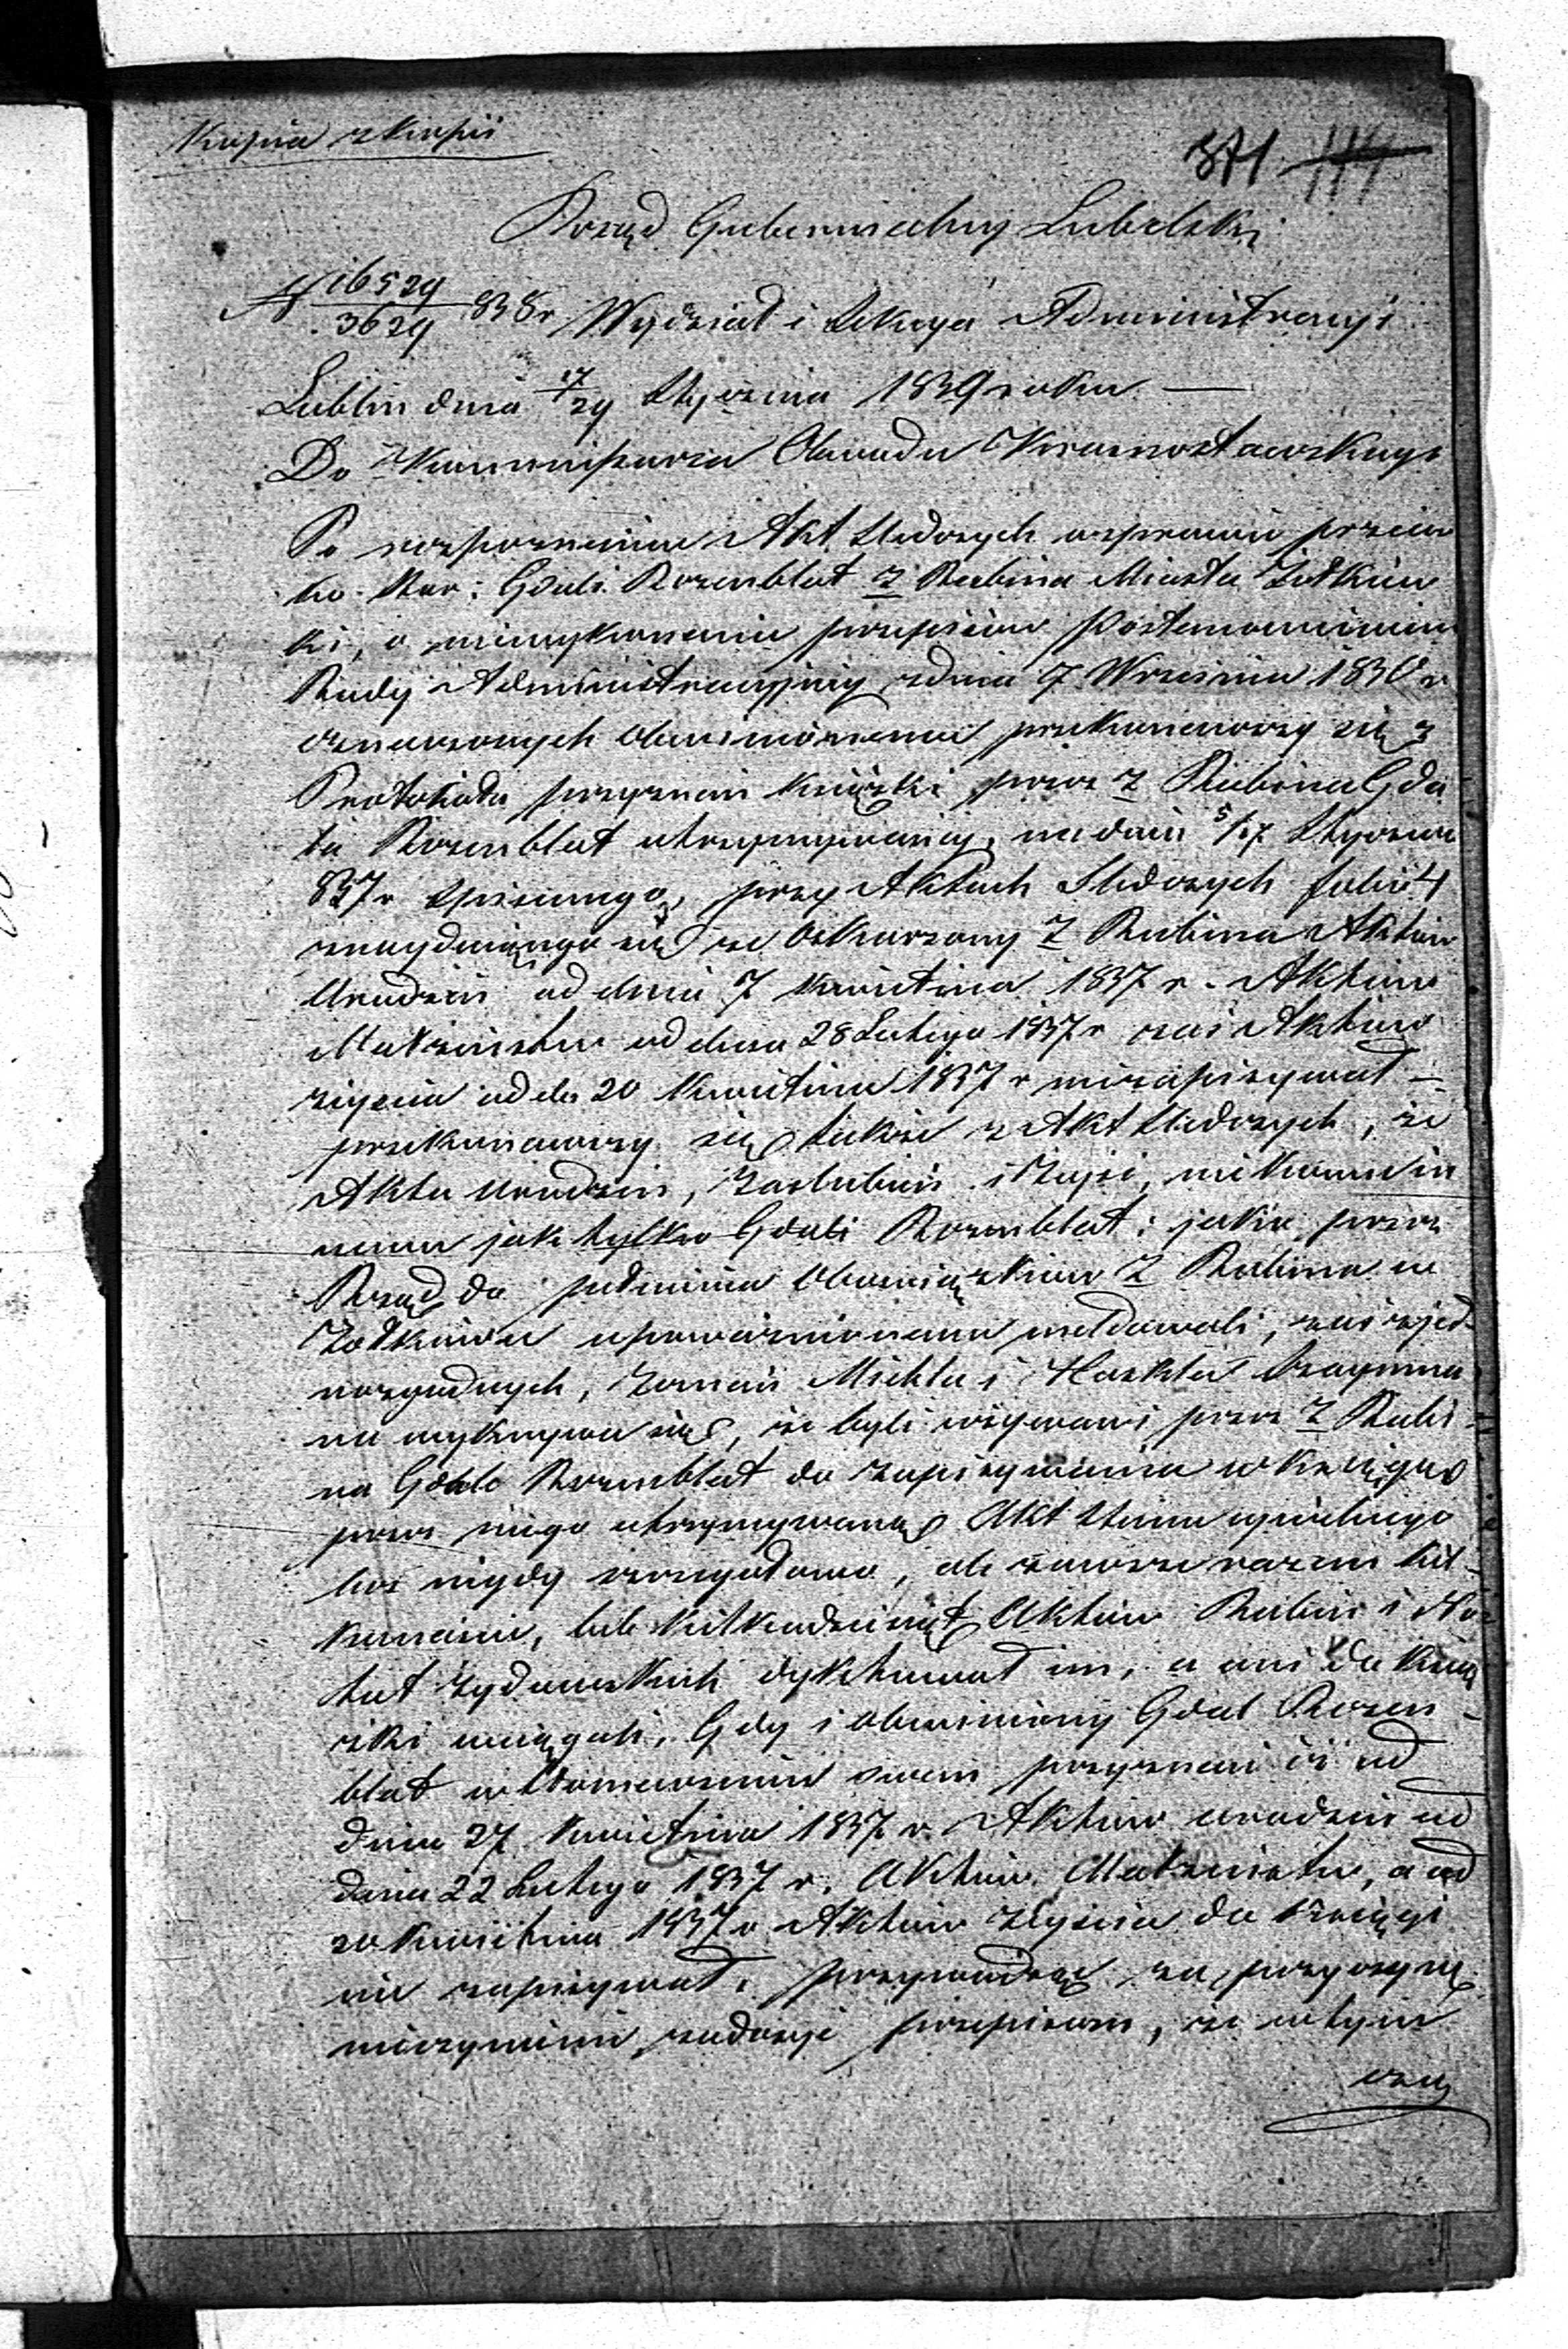 Kopia z kopii
371 114
Rząd Gubernialny Lubelski
N 16529/3629 838r Wydział i Sekcya Administracyi
Lublin dnia 17/29 Stycznia 1839 roku —
Do Kommissarza Obwodu Krasnostawskiego
Po rozpoznaniu Akt Śledczych w sprawie przeciw
ko Star: Gdali Rozenblat Z Rabina Miasta Żółkiew
ki, o niewykonanie przepisów Postanowieniem
Rady Administracyjnej z dnia 7 Września 1830 r
oznaczonych obwinionemu przekonawszy się z
Protokołu przyznań książki przez Z Rabina Gda
la Rozenblat utrzymywanej, na dniu 5/17 Stycznia
837 r spisanego, przy Aktach Śledczych folio 4
znaydującego się że Oskarzony Z Rabina Aktów
Urodzin od dnia 7 Kwietnia 1837 r. Aktów
Małżeństw od dnia 28 Lutego 1837 r zaś Aktów
zeyścia od dn 20 Kwietnia 1837 r niezapisywał —
przekonawszy się także z Akt Śledczych, że
Akta Urodzin, Zaślubin i Zejść, nikomu in
nemu jak tylko Gdali Rozenblat; jako przez
Rząd do pełnienia Obowiązków Z Rabina w
Żółkiewce upoważnionemu meldowali, zaś z jed
nozgodnych, Zeznań Michla i Haskla Szayma
na wykrywa się, że byli wzywani przez Z Rabi
na Gdale Rozenblat do zapisywania w księgę
przez niego utrzymywaną Akt Stanu cywilnego
lecz nigdy szczegółowo, ale zawsze razem kil
kanaście, lub kilkadziesiąt Aktów Rabin i No
tat Żydowskich dyktował im, a oni do Ksią
żki wciągali, Gdy i obwiniony Gdal Rozen
blat w tłomaczeniu swem przyznał iż od
dnia 27 Kwietnia 1837 r. Aktów urodzin od
dnia 22 Lutego 1837 r. Aktów Małżeństw, a od
20 Kwietnia 1837 r Aktów Zeyścia do Księgi
nie zapisywał, przywodząc za przyczynę
nieczynienia zadosyć przepisom, że w tym
cza